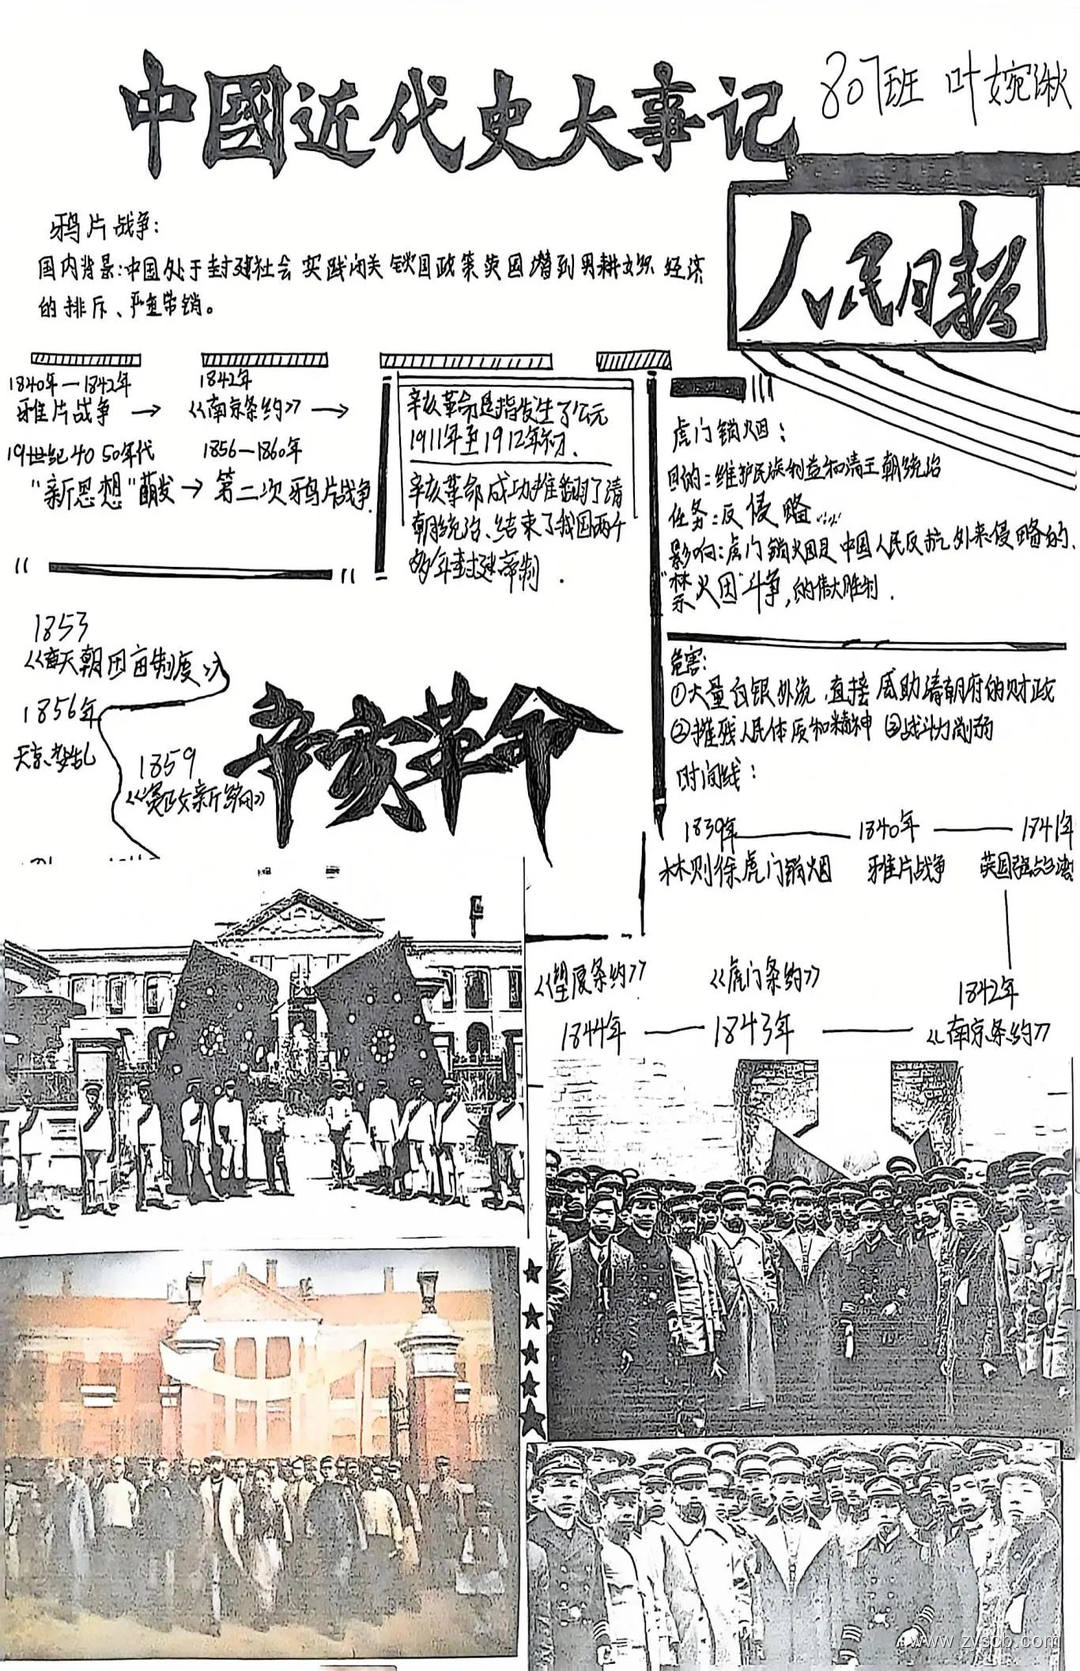 中國近代史大事记
807班 叶婉湫
人民日报
鸦片战争:
国内背景:中国处于封建社会 实践闭关锁国政策 英国遭到男耕女织 经济
的排斥、严重滞销。
1840年—1842年
雅片战争 →
1842年
《南京条约》 →
19世纪40 50年代
"新思想"萌发 →
1856—1860年
第二次鸦片战争
辛亥革命是指发生了公元
1911年至1912年初.
辛亥革命成功推翻了清
朝统治、结束了我国两千
多年封建帝制.
虎门销烟:
目的:维护民族利益和清王朝统治
任务:反侵略……
影响:虎门销烟是中国人民反抗外来侵略的、
"禁火因"斗争,的伟大胜利.
危害:
①大量白银外流,直接威助清朝府的财政
②摧残人民体质和精神 ③战斗力削弱
时间线:
1839年——1840年——1841年
林则徐虎门销烟 雅片战争 英国强占台湾
1842年
《南京条约》
《虎门条约》
1843年
《望厦条约》
1844年
1853
天朝田亩制度》
1856年
天京变乱
1859
《资政新编》
辛亥革命
www.zyscb.com